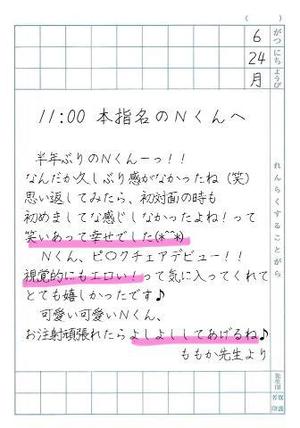 ( )
6 がつ
24 にち
月 ようび
れんらくすることがら
11:00 本指名のNくんへ
半年ぶりのNくんーっ!!
なんだか久しぶり感がなかったね(笑)
思い返してみたら、初対面の時も
初めましてな感じしなかったよね!って
笑いあって幸せでした(*^^*)
Nくん、ピ〇クチェアデビュー!!
視覚的にもエロい!って気に入ってくれて
とても嬉しかったです♪
可愛い可愛いNくん、
お注射頑張れたらよしよししてあげるね♪
ももか先生より